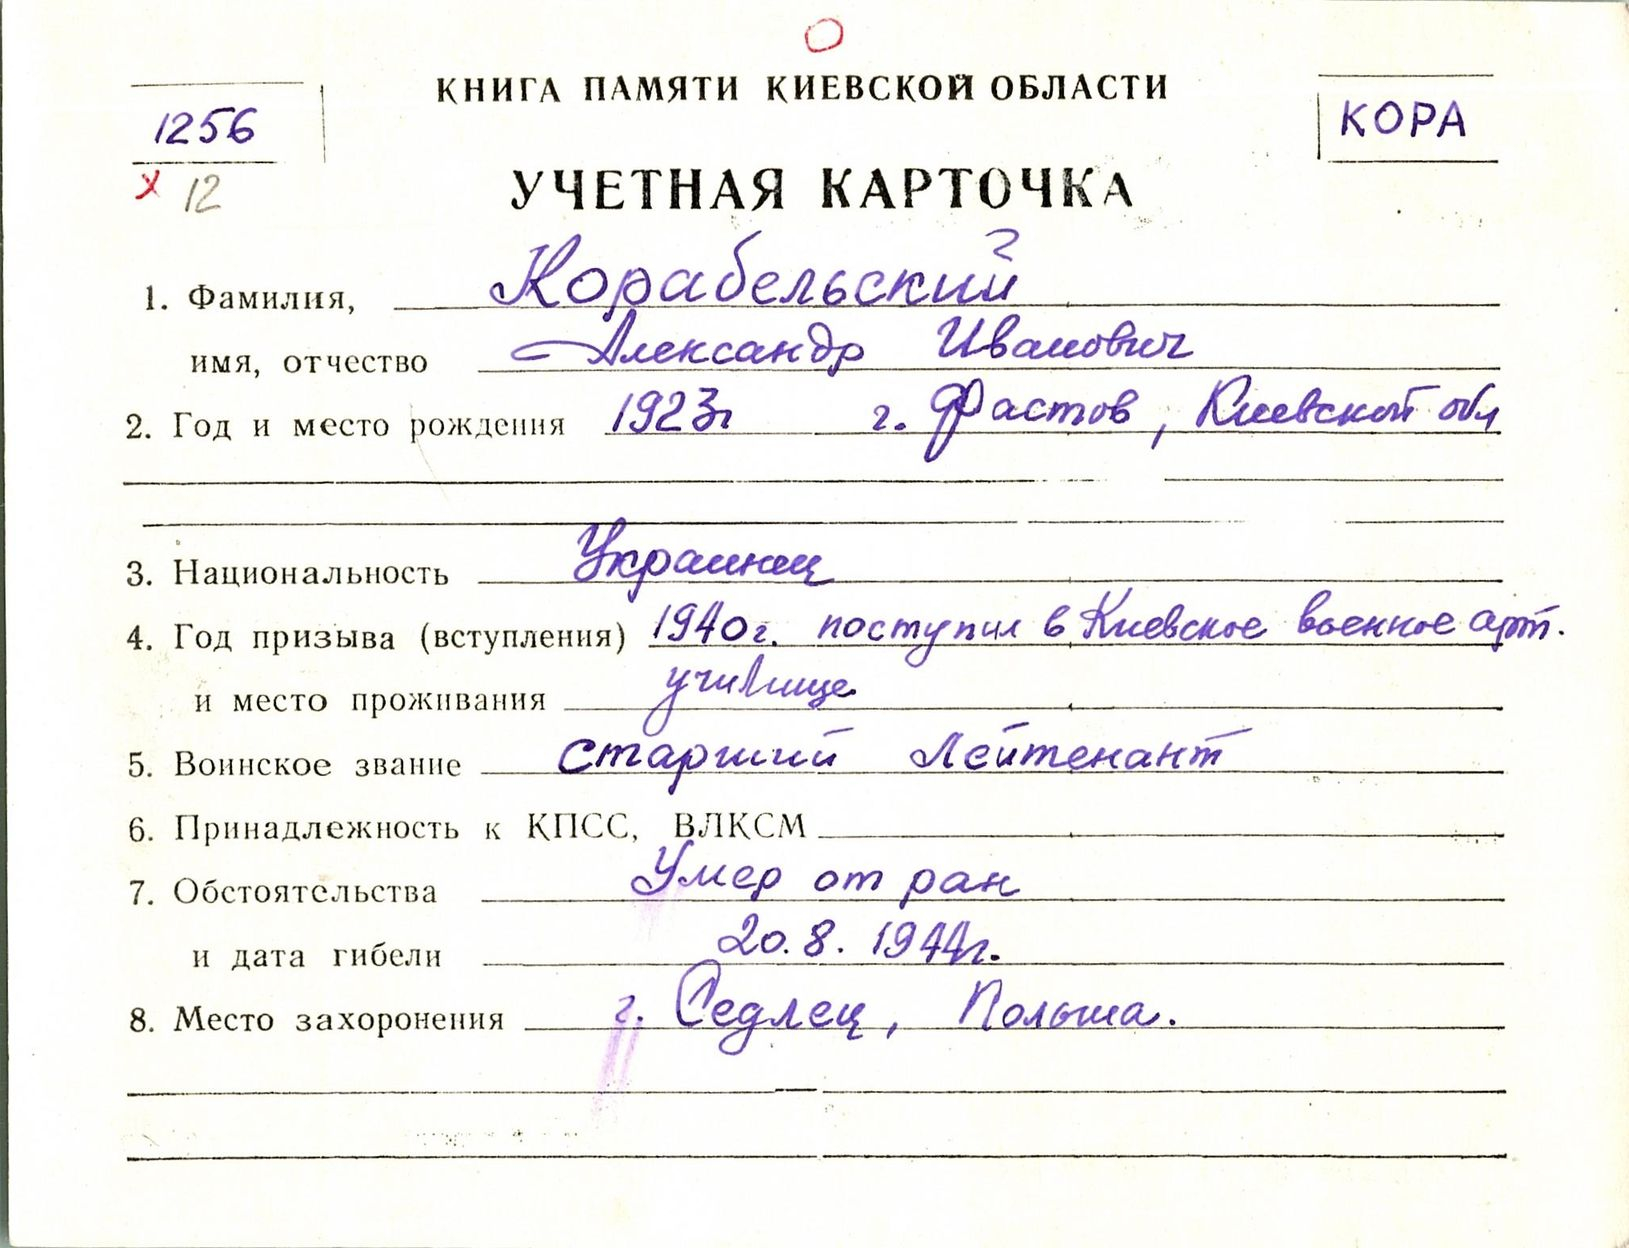 КНИГА ПАМЯТИ КИЕВСКОЙ ОБЛАСТИ
1256
КОРА
х 12
УЧЕТНАЯ КАРТОЧКА
1. Фамилия, Корабельский
имя, отчество Александр Иванович
2. Год и место рождения 1923г г. Фастов, Киевской обл
3. Национальность Украинец
4. Год призыва (вступления) 1940г. поступил в Киевское военное арт.
и место проживания училище
5. Воинское звание старший лейтенант
6. Принадлежность к КПСС, ВЛКСМ
7. Обстоятельства Умер от ран
и дата гибели 20.8.1944г.
8. Место захоронения г. Седлец, Польша.